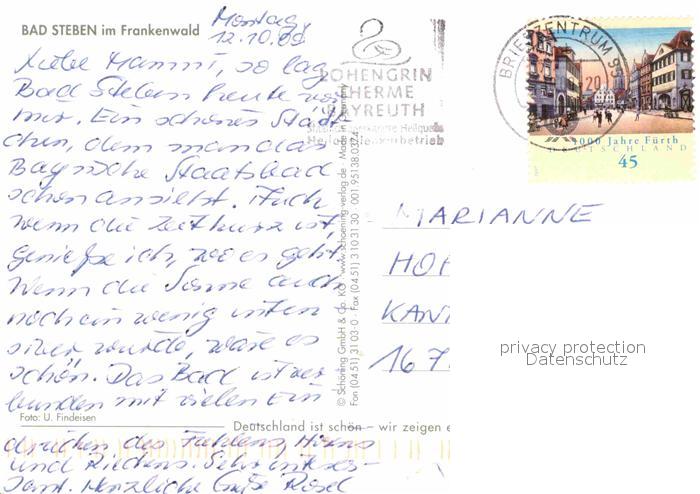 BAD STEBEN im Frankenwald
Montag
12.10.09
Liebe Mammi, so lag
Bad Steben heute vor
mir. Ein schönes Städt-
chen, dem man das
Bayrische Staatsbad
schon ansieht. Auch
wenn die Zeit kurz ist,
genieße ich, wo es geht.
Wenn die Sonne auch
noch ein wenig inten
siver wurde, wäre es
schön. Das Bad ist ver
bunden mit vielen Ein
drücken des Fühlens, Hörens
und Riechens. Sehr interes-
sant. Herzliche Grüße Rosel
Foto: U. Findeisen
Deutschland ist schön – wir zeigen e
© Schöning GmbH & Co. KG · www.schoening-verlag.de · Made in Germany
Fon (04 51) 31 03 0 · Fax (04 51) 3 10 31 30 001 95138 0374
LOHENGRIN
THERME
BAYREUTH
Staatlich anerkannte Heilquelle
Heilquellenkurbetrieb
BRIEFZENTRUM 95
20
1000 Jahre Fürth
DEUTSCHLAND
45
MARIANNE
HOF
KANT
167
privacy protection
Datenschutz